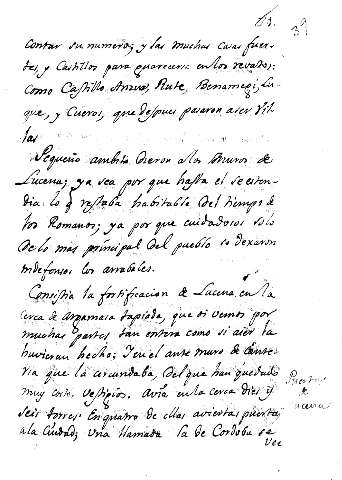 39
contar su numero; y las muchas Casas fuer-
tes, y Castillos para guarecerse en los revatos;
como Castillo Anzur, Rute, Benamegi, Lu-
que, y Cueros, que despues pasaron a ser Vi-
llas
Pequeño ambito dieron a los Muros de
Lucena; ya sea por que hasta el se esten-
dia lo q restaba habitable del tiempo de
los Romanos; ya por que cuidadosos solo
de lo mas principal del pueblo se dexaron
indefensos los arrabales.
Consistia la fortificacion de Lucena, en la
cerca de Argamasa tapiada, que oi vemos por
muchas partes tan entera como si aier la
huvieran hecho; I en el ante muro de Cante-
ria que la circundaba, del que han quedado
muy cortos vestigios. Avia en la cerca diez y
seis torres: En quatro de ellas aviertas puertas
a la Ciudad; Una llamada la de Cordoba se
vee
Puertas
de
Lucena